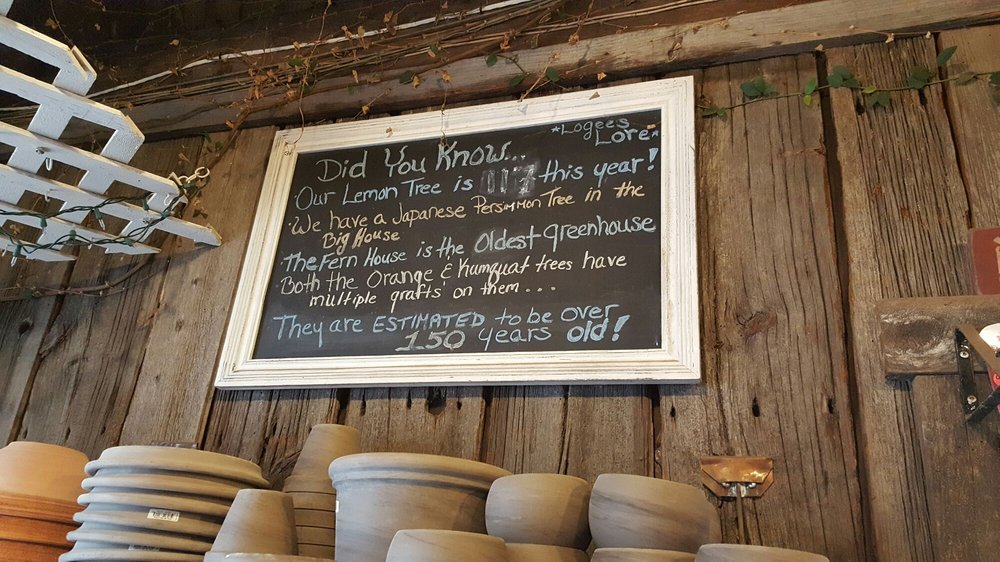 *Logees
Lore*
Did You Know...
·Our Lemon Tree is 117 this year!
·We have a Japanese Persimmon Tree in the
Big House
·The Fern House is the Oldest greenhouse
·Both the Orange & Kumquat trees have
multiple grafts on them...
They are ESTIMATED to be over
150 years old!